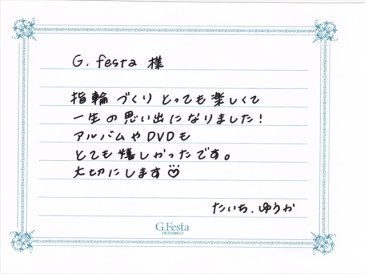 G. festa 様
指輪づくりとっても楽しくて
一生の思い出になりました！
アルバムやDVDも
とても嬉しかったです。
大切にします♡
たいち、ゆうか
G.Festa